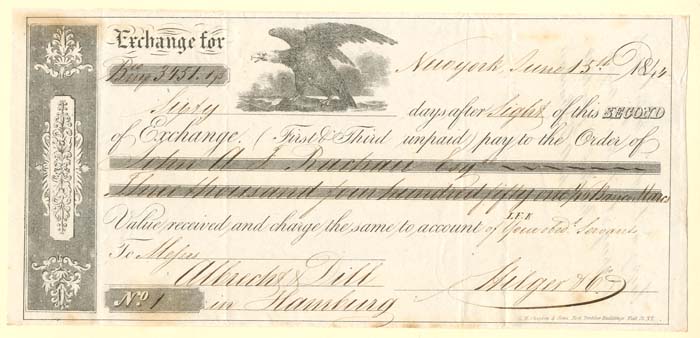 Exchange for
Bco Mrcs 3451.
New york June 15th 184
Sixty days after Sight of this SECOND
of Exchange. (First & Third unpaid) pay to the Order of
John A. Esq
three thousand four hundred fifty one Banco Mrcs
Value received and charge the same to account of
Your obdt. Servants
To Messrs
Albrecht & Dill
Hilger & Co
No 1 in Hamburg